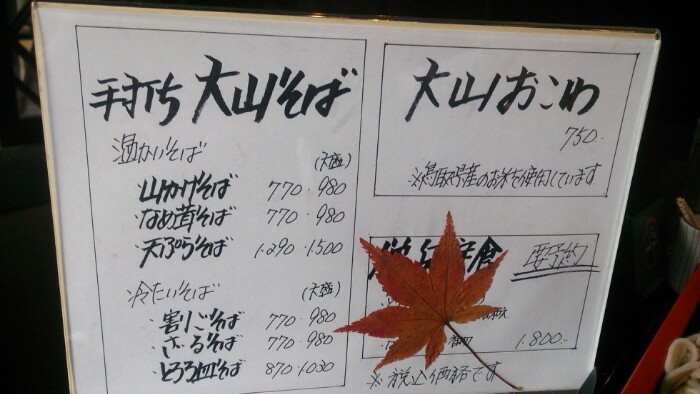 手打ち 大山そば
温かいそば (大盛)
山かけそば 770 · 980
なめ茸そば 770 · 980
天ぷらそば 1.290 · 1.500
冷たいそば (大盛)
・割ごそば 770 · 980
・ざるそば 770 · 980
・とろろ皿そば 870 · 1.030
大山おこわ
750.-
※鳥取県産のお米を使用しています
要予約
1.800.-
※税込価格です